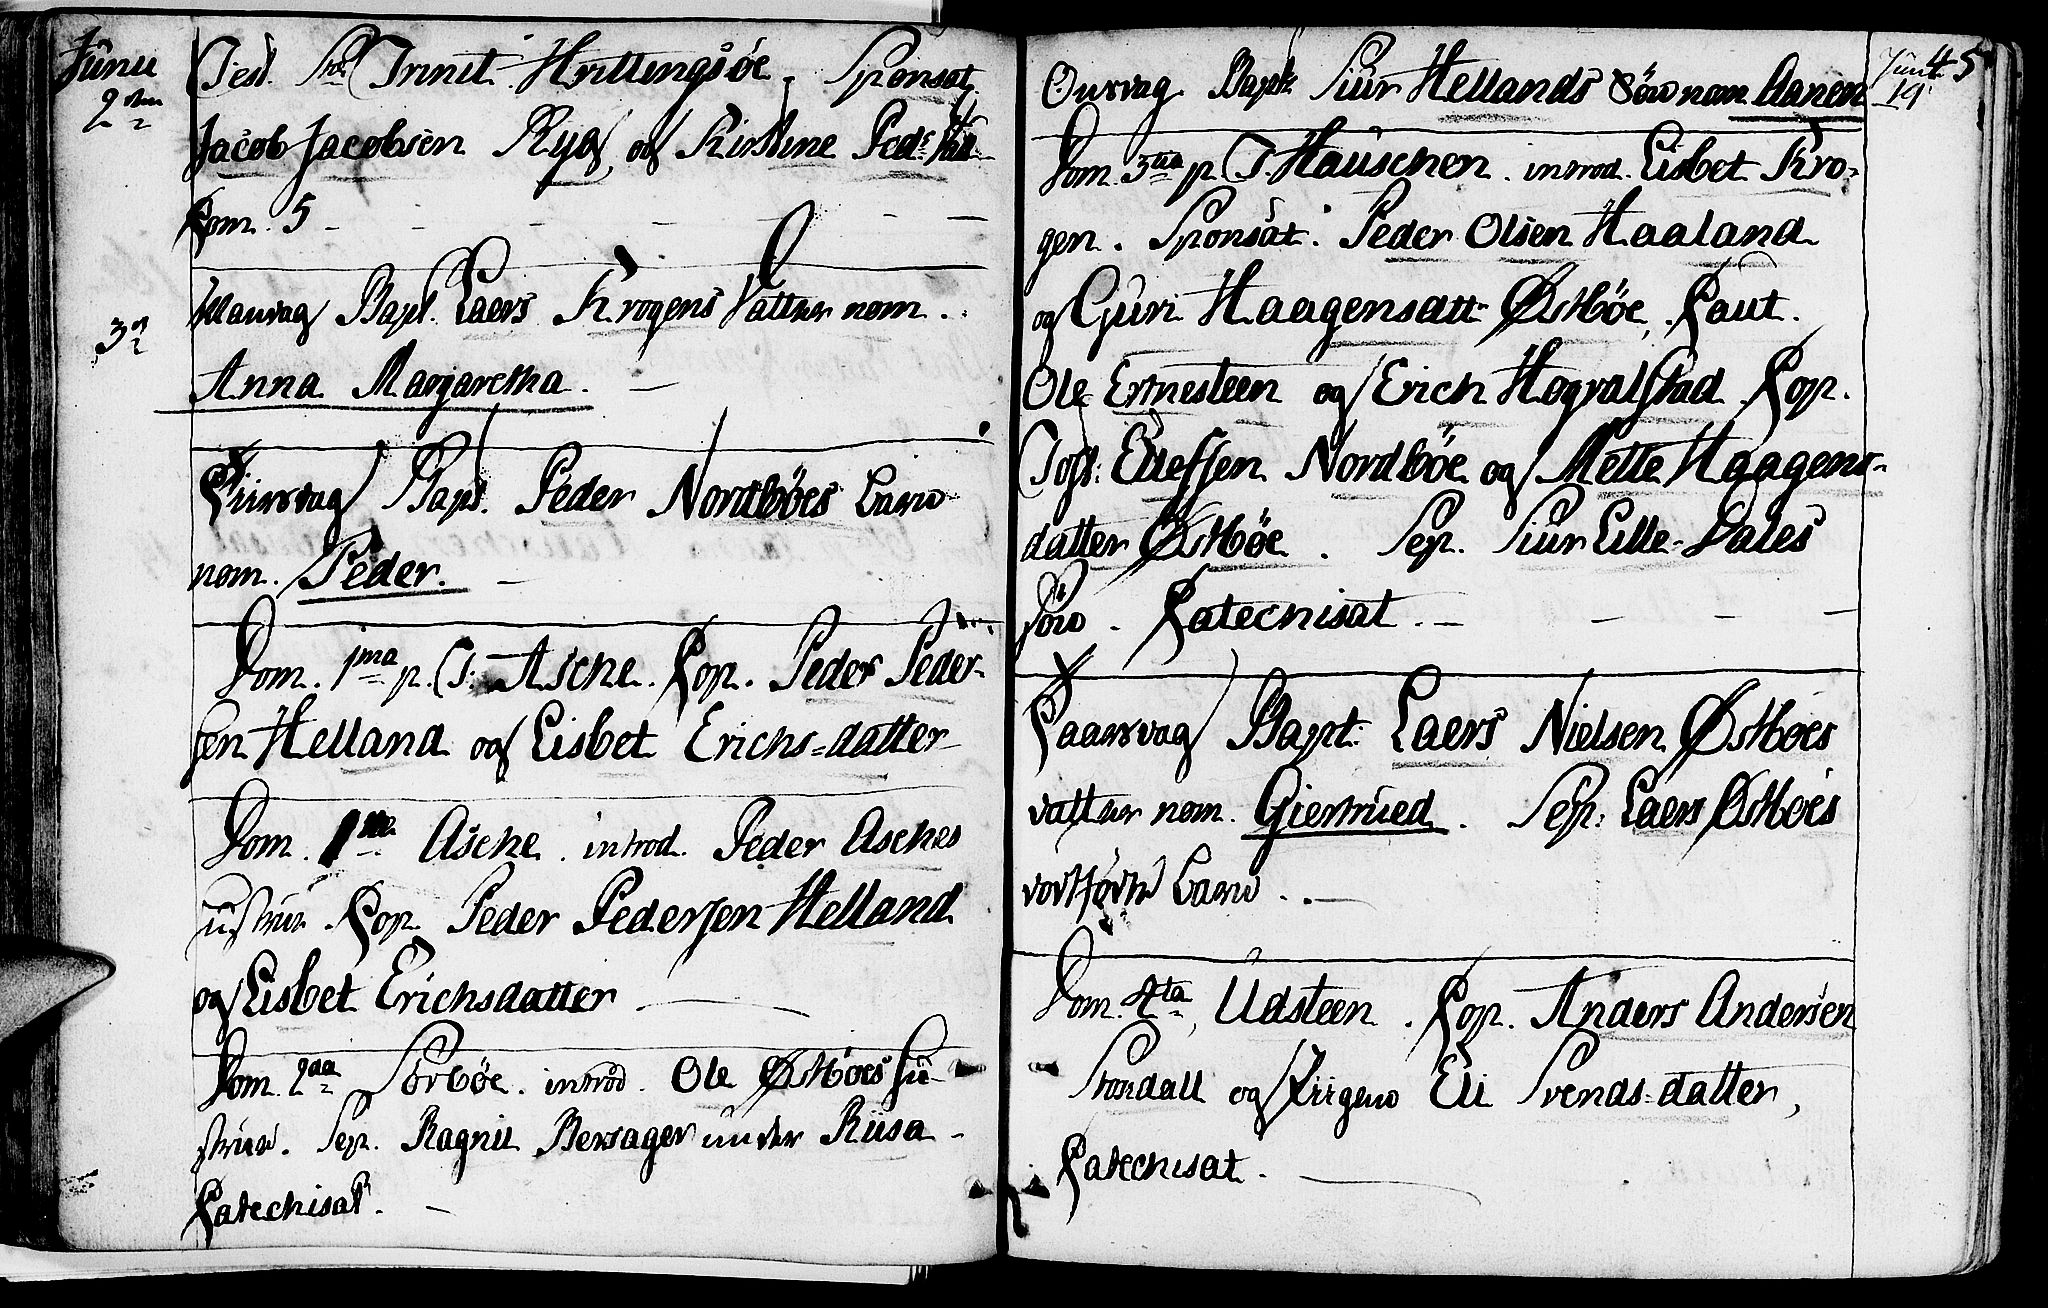 Junii
2den
Fest. Stæ Trinit. Hvittingsöe. Sponsat.
Jacob Jacobsen Ryg, og Kirstine Peds
Kom. 5 -
3die
Mandag Bapt. Laers Krogens datter nom.
Anna Margaretha. -
Tiirsdag Bapt. Peder Nordböes barn
nom. Peder. -
Dom. 1ma p. T. Asche. Cop. Peder Peder-
sen Helland og Lisbet Erichs-datter
Dom. 1ma Asche. introd. Peder Asches
ustrue. Cop. Peder Pedersen Helland
og Lisbet Erichsdatter
Dom. 2da Sörböe. introd. Ole Østböes hu-
strue. Sep. Ragnil Bersager under Riisa -
Catechisat. -
45
Junii
19
Onsdag Bapt. Siur Hellands Sön nom. Aanen
Dom. 3tia p. T. Hauschen. introd. Lisbet Kro-
gen. Sponsat. Peder Olsen Haaland
og Guri Haagensdatt Østböe, Caut.
Ole Ermesteen og Erich Hognalstad. Cop.
Tost: Ellefsen Nordböe og Mette Haagens-
datter Østböe. Sep. Siur Lille-Dales
Sön. Catechisat. -
Laarsdag Bapt. Laers Nielsen Østböes
datter nom. Giertrued. Sep: Laers Østböes
dödfödte barn. -
Dom. 4ta, Udsteen. Cop. Anders Andersen
Stondall og Piigen Eli Svends-datter,
Catechisat. -